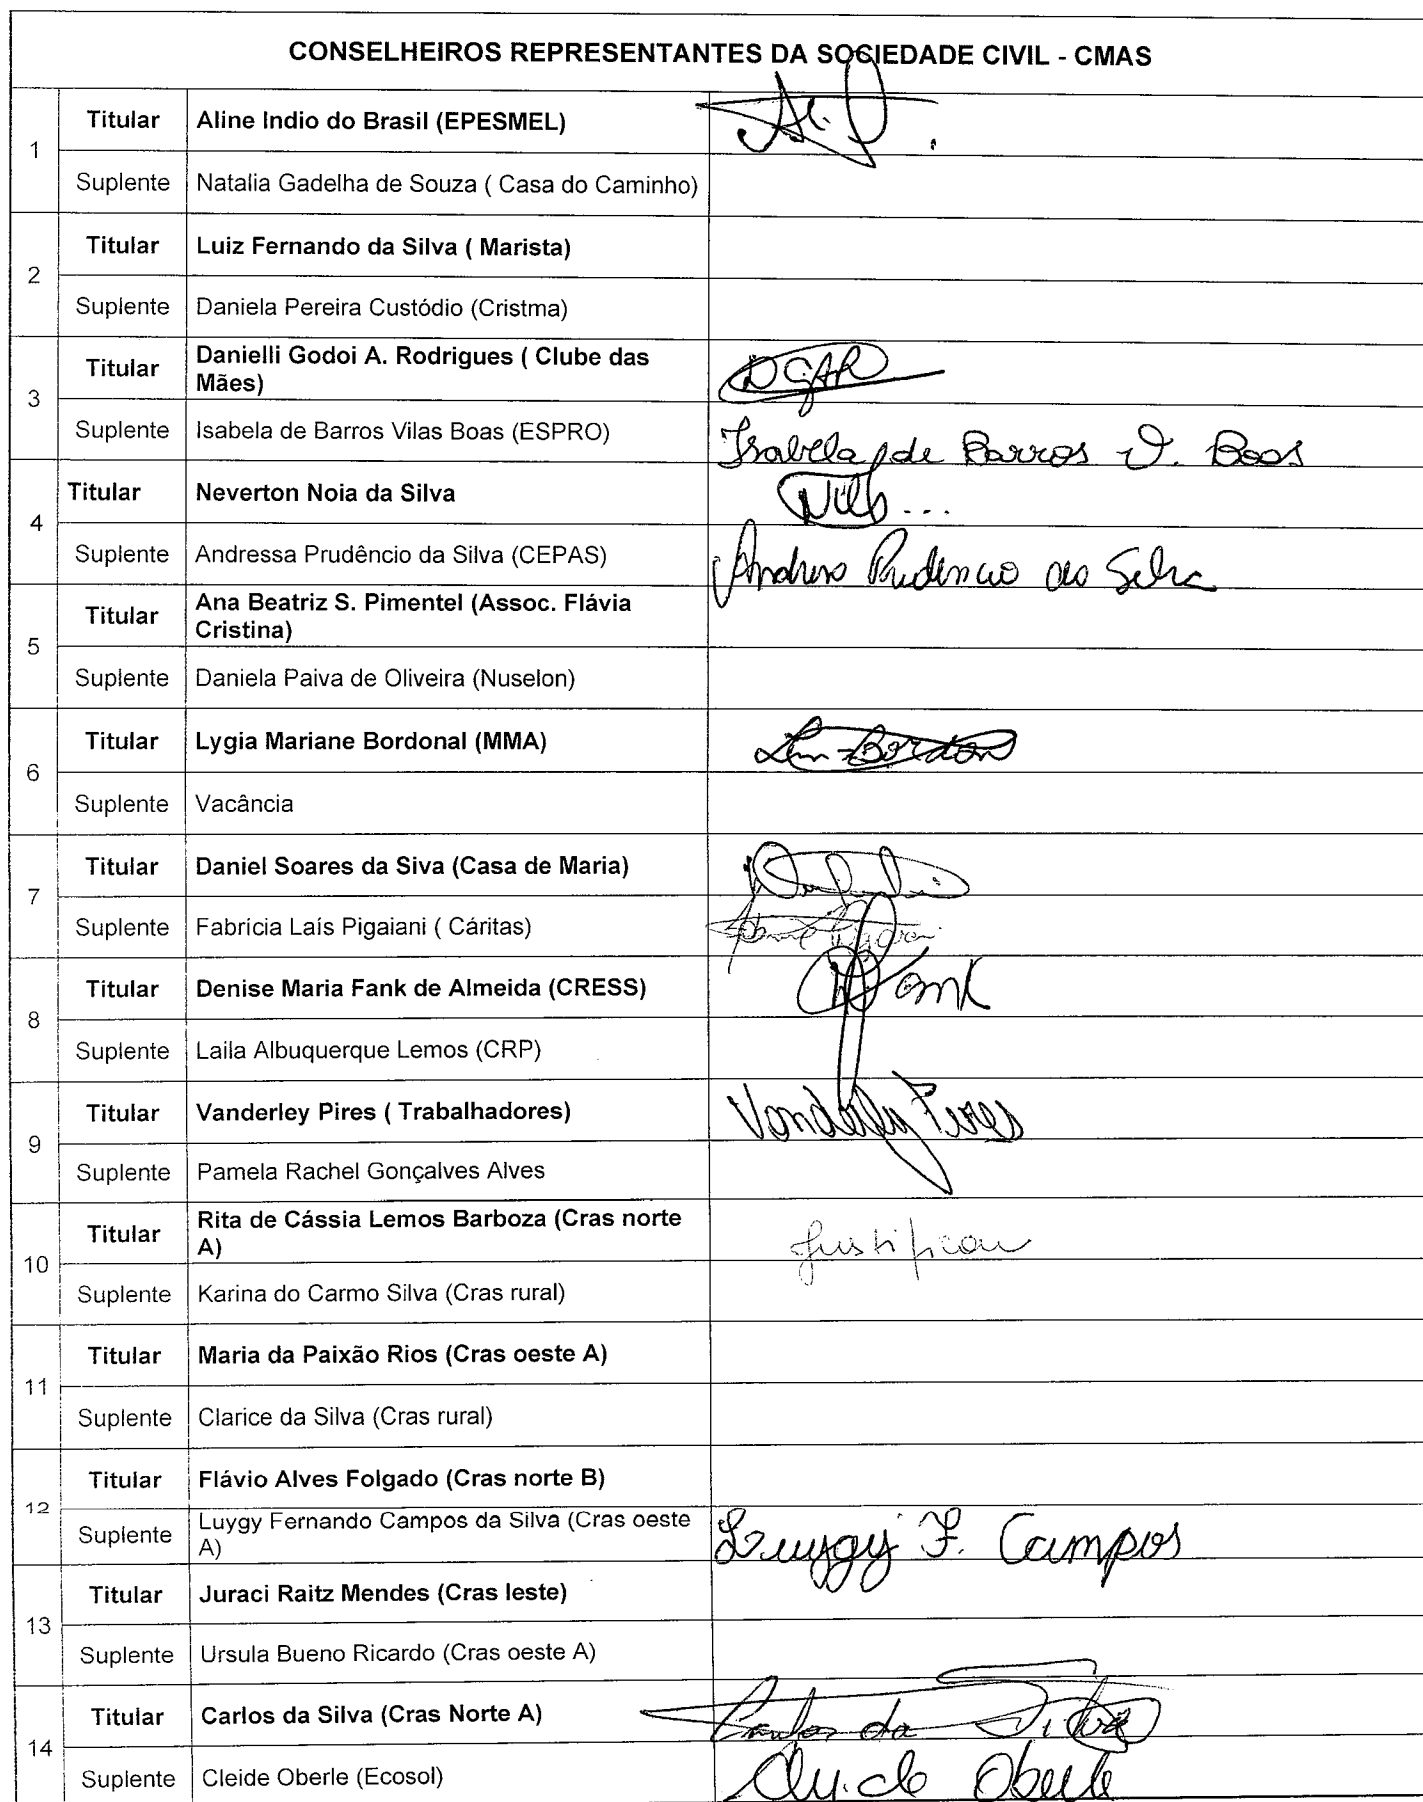 CONSELHEIROS REPRESENTANTES DA SOCIEDADE CIVIL - CMAS
1
Titular Aline Indio do Brasil (EPESMEL)
Suplente Natalia Gadelha de Souza ( Casa do Caminho)
2
Titular Luiz Fernando da Silva ( Marista)
Suplente Daniela Pereira Custódio (Cristma)
3
Titular Danielli Godoi A. Rodrigues ( Clube das
Mães) DGAR
Suplente Isabela de Barros Vilas Boas (ESPRO) Isabela de Barros V. Boas
4
Titular Neverton Noia da Silva
Suplente Andressa Prudêncio da Silva (CEPAS) Andressa Prudencio da Silva
5
Titular Ana Beatriz S. Pimentel (Assoc. Flávia
Cristina)
Suplente Daniela Paiva de Oliveira (Nuselon)
6
Titular Lygia Mariane Bordonal (MMA)
Suplente Vacância
7
Titular Daniel Soares da Siva (Casa de Maria)
Suplente Fabrícia Laís Pigaiani ( Cáritas)
8
Titular Denise Maria Fank de Almeida (CRESS) Fank
Suplente Laila Albuquerque Lemos (CRP)
9
Titular Vanderley Pires ( Trabalhadores) Vanderley Pires
Suplente Pamela Rachel Gonçalves Alves
10
Titular Rita de Cássia Lemos Barboza (Cras norte
A) Justificou
Suplente Karina do Carmo Silva (Cras rural)
11
Titular Maria da Paixão Rios (Cras oeste A)
Suplente Clarice da Silva (Cras rural)
12
Titular Flávio Alves Folgado (Cras norte B)
Suplente Luygy Fernando Campos da Silva (Cras oeste
A) Luygy F. Campos
13
Titular Juraci Raitz Mendes (Cras leste)
Suplente Ursula Bueno Ricardo (Cras oeste A)
14
Titular Carlos da Silva (Cras Norte A) Carlos da Silva
Suplente Cleide Oberle (Ecosol) Cleide Oberle